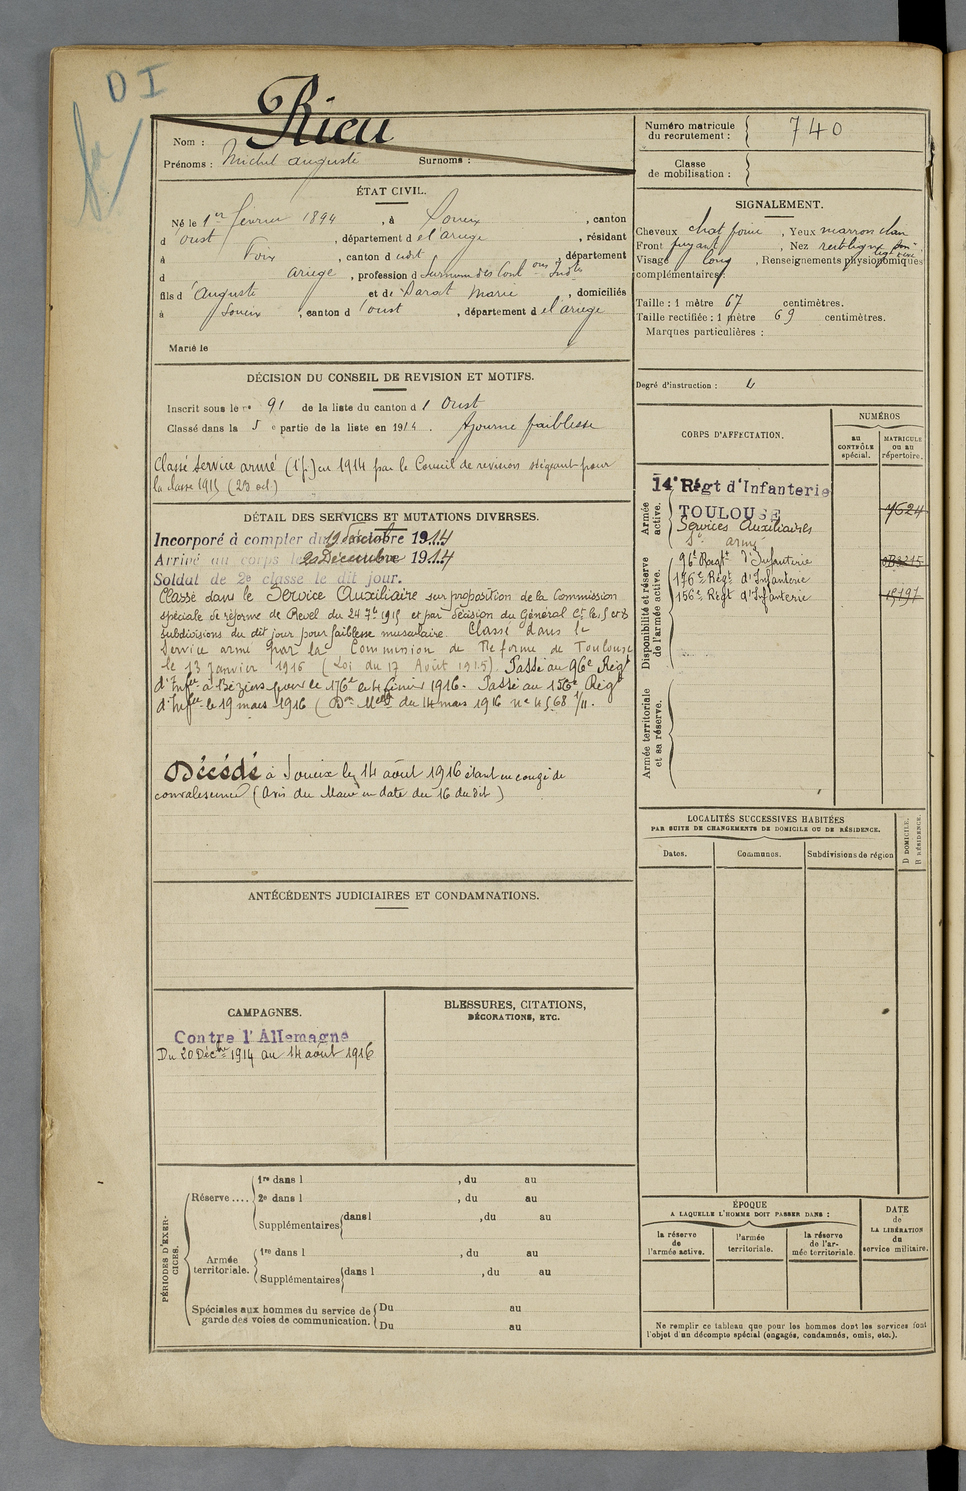 D I
Rieu
Nom :
Prénoms : Michel Auguste Surnoms :
ÉTAT CIVIL.
Né le 1er février 1894, à Soueix, canton
d'Oust, département de l'ariège, résidant
à Foix, canton d udit, département
d ariège, profession d Surnum des Cont ons Indtes
fils d'Auguste et de Marie, domiciliés
à Soueix, canton d'oust, département de l'ariège
Marié le
DÉCISION DU CONSEIL DE REVISION ET MOTIFS.
Inscrit sous le no 91 de la liste du canton d'Oust
Classé dans la 5e partie de la liste en 1914. Ajourné faiblesse
Classé Service armé (1 p.) en 1914 par le Conseil de revision siégeant pour
la classe 1915 (23 oct.)
DÉTAIL DES SERVICES ET MUTATIONS DIVERSES.
Incorporé à compter du 19 1914
Arrivé au corps le 20 Décembre 1914
Soldat de 2e classe le dit jour.
Classé dans le Service Auxiliaire sur proposition de la Commission
spéciale de réforme de Revel du 24 7bre 1915 et par décision du Général Ct les 5 et
subdivisions du dit jour pour faiblesse musculaire. Classé dans le
Service armé par la Commission de Réforme de Toulouse
le 13 janvier 1916 (Loi du 17 Août 1915). Passé au 96e Régt
d'Infie à Béziers pour le 176e le 4 février 1916. Passé au 156e Régt
d'Infie le 19 mars 1916 (Don Melle du 14 mars 1916 no 4568 1/11.
Décédé à Soueix le 14 août 1916 étant en congé de
convalescence (Avis du Maire en date du 16 du dit)
ANTÉCÉDENTS JUDICIAIRES ET CONDAMNATIONS.
CAMPAGNES.
Contre l'Allemagne
Du 20 Décbre 1914 au 14 août 1916
BLESSURES, CITATIONS,
DÉCORATIONS, ETC.
PÉRIODES D'EXERCICES.
Réserve....
1re dans l , du au
2e dans l , du au
Supplémentaires dans l , du au
Armée territoriale.
1re dans l , du au
Supplémentaires dans l , du au
Spéciales aux hommes du service de Du au
garde des voies de communication. Du au
Numéro matricule
du recrutement : 740
Classe
de mobilisation :
SIGNALEMENT.
Cheveux chat foncé, Yeux marron clair
Front fuyant, Nez rectiligne
Visage long, Renseignements physionomiques
complémentaires :
Taille : 1 mètre 67 centimètres.
Taille rectifiée : 1 mètre 69 centimètres.
Marques particulières :
Degré d'instruction : 4
CORPS D'AFFECTATION.
NUMÉROS
au CONTRÔLE spécial.
MATRICULE ou au répertoire.
Armée active.
14e Régt d'Infanterie
TOULOUSE
7624
Services Auxiliaires
Sce armé
Disponibilité et réserve de l'armée active.
96e Régt d'Infanterie
176e Régt d'Infanterie
156e Régt d'Infanterie
Armée territoriale et sa réserve.
LOCALITÉS SUCCESSIVES HABITÉES
PAR SUITE DE CHANGEMENTS DE DOMICILE OU DE RÉSIDENCE.
Dates.
Communes.
Subdivisions de région
D DOMICILE.
R RÉSIDENCE.
ÉPOQUE
A LAQUELLE L'HOMME DOIT PASSER DANS :
la réserve de l'armée active.
l'armée territoriale.
la réserve de l'armée territoriale.
DATE de LA LIBÉRATION du service militaire.
Ne remplir ce tableau que pour les hommes dont les services font
l'objet d'un décompte spécial (engagés, condamnés, omis, etc.).